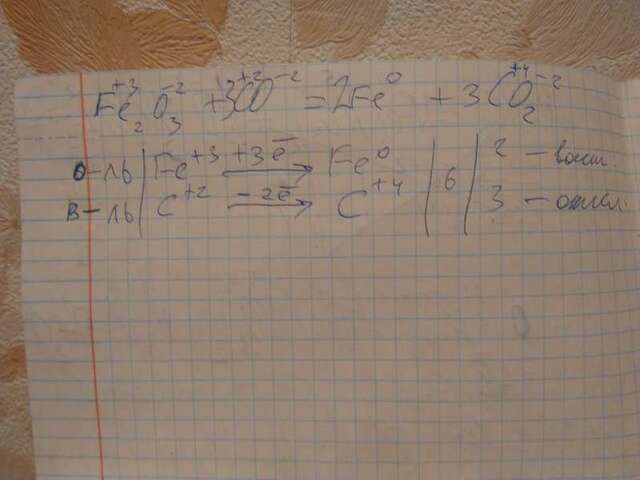 Fe₂⁺³O₃⁻² + 3C⁺²O⁻² = 2Fe⁰ + 3C⁺⁴O₂⁻²
О-ль | Fe⁺³ +3e̅→ Fe⁰ | 6 | 2 – восст.
В-ль | C⁺² -2e̅→ C⁺⁴ | | 3 – окисл.